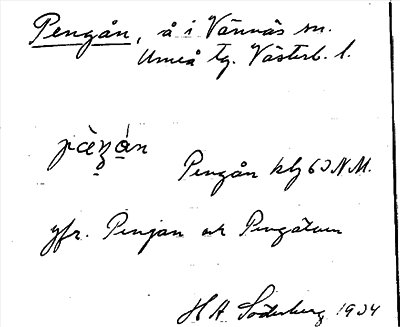 Pengån, å i Vännäs sn.
Umeå tg. Västerb. l.
Pengån kbl 63 N.M.
jfr. Penjan och Pengåtum
H A Söderberg 1934